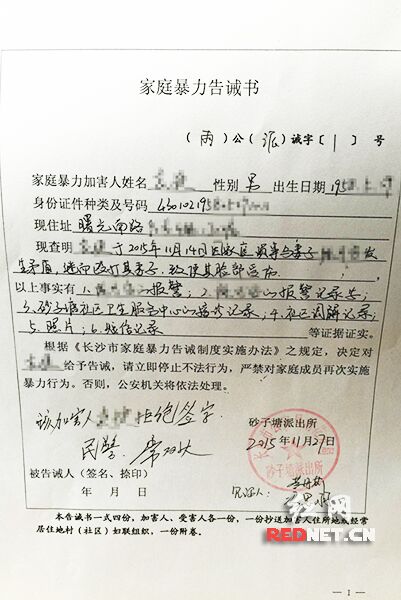 家庭暴力告诫书
（雨）公（派）诫字〔1〕号
家庭暴力加害人姓名 性别 男 出生日期 195
身份证件种类及号码
现住址 曙光南路
现查明 于2015年11月14日因家庭琐事与妻子 发
生矛盾，
以上事实有1. 报警；2. 的报警记录等；
3.砂子塘社区卫生服务中心的接诊记录；4.社区调解记录；
5.照片；6.短信记录 等证据证实。
根据《长沙市家庭暴力告诫制度实施办法》之规定，决定对
给予告诫，请立即停止不法行为，严禁对家庭成员再次实施
暴力行为。否则，公安机关将依法处理。
该加害人 拒绝签字 砂子塘派出所
民警 2015年11月27日
砂子塘派出所
被告诫人（签名、捺印） 见证人：
年 月 日
本告诫书一式四份，加害人、受害人各一份，一份抄送加害人住所地或经常
居住地村（社区）妇联组织，一份附卷。
红网
REDNET.CN
— 1 —